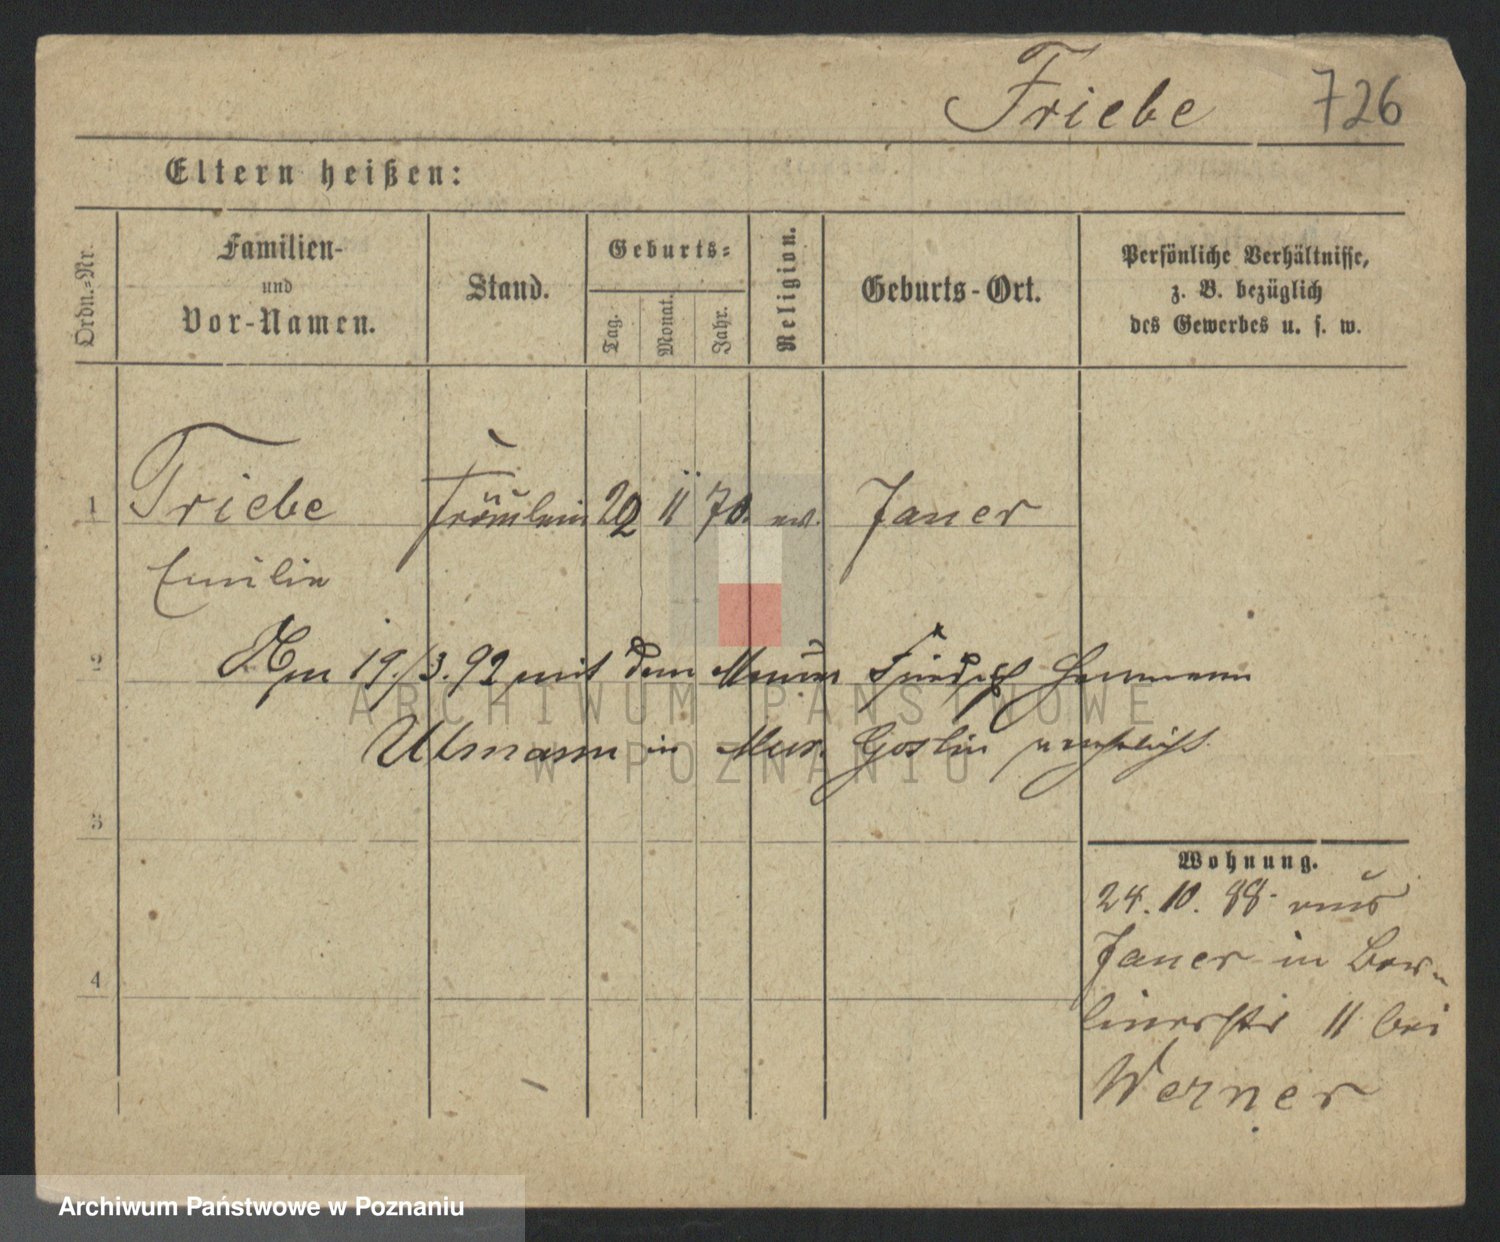 Friebe 726
Eltern heißen:
Ordn.-Nr.
Familien-
und
Vor-Namen.
Stand.
Geburts-
Tag.
Monat.
Jahr.
Religion.
Geburts-Ort.
Persönliche Verhältnisse,
z. B. bezüglich
des Gewerbes u. s. w.
1 Friebe Fräulein 22 11 70. ev. Jauer
Emilie
2
Am 19./3.92 mit dem Maurer Friedrich Hermann
Utmann in Mur. Goslin verehelicht.
3
4
Wohnung.
24. 10. 88. aus
Jauer in Ber-
linerstr 11 bei
Werner
ARCHIWUM PAŃSTWOWE
W POZNANIU
Archiwum Państwowe w Poznaniu